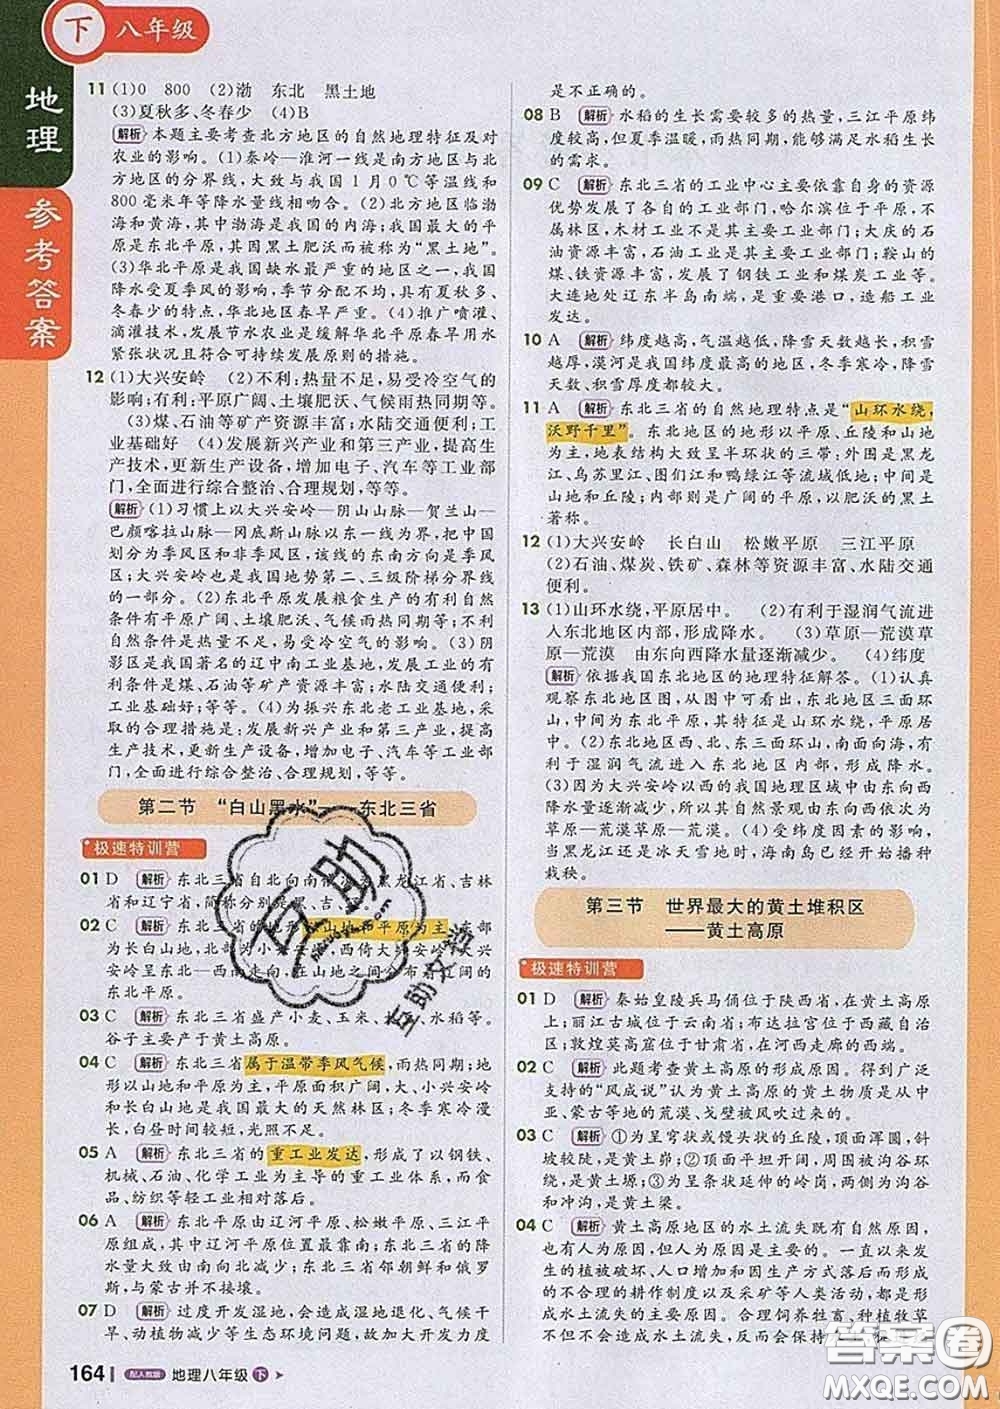 下 八年级
地理
参考答案
11 (1)0 800 (2)渤 东北 黑土地
(3)夏秋多、冬春少 (4)B
解析 本题主要考查北方地区的自然地理特征及对
农业的影响。(1)秦岭—淮河一线是南方地区与北
方地区的分界线，大致与我国1月0℃等温线和
800毫米年等降水量线相吻合。(2)北方地区临渤
海和黄海，其中渤海是我国的内海；我国最大的平
原是东北平原，这里因黑土肥沃而被称为“黑土地”。
(3)华北平原是我国缺水最严重的地区之一，我国
降水受夏季风的影响，季节分配不均，具有夏秋多、
冬春少的特点，华北地区春旱严重。(4)推广喷灌、
滴灌技术，发展节水农业是缓解华北平原春旱用水
紧张状况且符合可持续发展原则的措施。
12 (1)大兴安岭 (2)不利：热量不足，易受冷空气的
影响；有利：平原广阔、土壤肥沃、气候雨热同期等。
(3)煤、石油等矿产资源丰富；水陆交通便利；工
业基础好 (4)发展新兴产业和第三产业，提高技
术，更新生产设备，增加电子、汽车等工业部
门，全面进行综合整治、合理规划，等等。
解析 (1)习惯上以大兴安岭—阴山山脉—贺兰山—
巴颜喀拉山脉—冈底斯山脉以东一线为界，把我国
划分为季风区和非季风区，该线的东南方向是季风
区。大兴安岭也是我国地势第二、三级阶梯分界线
的一部分。(2)东北平原发展粮食生产的有利自然
条件有平原广阔、土壤肥沃、气候雨热同期等；不利
自然条件是热量不足，易受冷空气的影响。(3)阴
影区是我国著名的辽中南工业基地，发展工业的有
利条件是煤、石油等矿产资源丰富；水陆交通便利；
工业基础好；等等。(4)为振兴东北老工业基地，采
取的合理措施是：发展新兴产业和第三产业，提高
技术，更新生产设备，增加电子、汽车等工业部门，
全面进行综合整治、合理规划，等等。
第二节 “白山黑水”——东北三省
极速特训营
01 D 解析 东北三省自北向南依次是黑龙江省、吉林
省和辽宁省，简称分别是黑、吉、辽。
02 C 解析 东北三省的地形以山地和平原为主，东部
为长白山地，北部为小兴安岭，西倚大兴安岭，大兴
安岭呈东北—西南走向，在山地之间分布着广阔的
东北平原。
03 C 解析 东北三省盛产小麦、玉米、大豆、水稻等。
谷子主要产于黄土高原。
04 C 解析 东北三省属于温带季风气候，雨热同期；地
形以山地和平原为主，平原面积广阔，大、小兴安岭
和长白山地是我国最大的天然林区；冬季寒冷漫
长，白昼时间较短，光照不足。
05 A 解析 东北三省的重工业发达，形成了以钢铁、
机械、石油、化学工业为主导的重工业体系，而食
品、纺织等轻工业相对落后。
06 A 解析 东北平原由辽河平原、松嫩平原、三江平
原组成，其中辽河平原位置最靠南；东北三省的降
水量大致自东南向西北减少；东北三省邻朝鲜和俄罗
斯，与蒙古并不接壤。
07 D 解析 过度开发湿地，会造成湿地退化、气候干
旱、动植物减少等生态环境问题，故加大开发力度
是不正确的。
08 B 解析 水稻的生长需要较多的热量，三江平原纬
度较高，热量不足，但夏季温暖，雨热同期，能满足水稻生长
的需求。
09 C 解析 东北三省的工业中心主要依靠自身的资源
优势发展了各自的工业部门，哈尔滨位于平原，不
属林区，木材工业不是其主要工业部门；大庆的石
油资源丰富，石油工业是其主要工业部门；鞍山的
煤、铁资源丰富，发展了钢铁工业和煤炭工业等。
大连地处辽东半岛南端，是重要港口，造船工业
发达。
10 A 解析 纬度越高，气温越低，降雪天数越长，积雪
越厚，漠河是我国纬度最高的地区，冬季寒冷，降雪
天数、积雪厚度都较大。
11 A 解析 东北三省的自然地理特点是“山环水绕，
沃野千里”。东北地区的地形以平原、丘陵和山地
为主，地表结构大致呈半环状的三带：外围是黑龙
江、乌苏里江、图们江和鸭绿江等流域低地；中间是
山地和丘陵；内部则是广阔的平原，以肥沃的黑土
著称。
12 (1)大兴安岭 长白山 松嫩平原 三江平原
(2)石油、煤炭、铁矿、森林等资源丰富，水陆交通
便利。
13 (1)山环水绕，平原居中。 (2)有利于湿润气流进
入东北地区内部，形成降水。 (3)草原—荒漠草
原—荒漠 由东向西降水量逐渐减少。 (4)纬度
解析 依据我国东北地区的地理特征解答。(1)认真
观察东北地区图，从图中可看出，东北地区三面环
山，中间为东北平原，其特征是山环水绕，平原居
中。(2)东北地区西、北、东三面环山，南面向海，有
利于湿润气流进入东北地区内部，形成降水。
(3)因为大兴安岭以西的地理区域中由东向西
降水量逐渐减少，所以其自然景观由东向西依次为
草原—荒漠草原—荒漠。(4)受纬度因素的影响，
当黑龙江还是冰天雪地时，海南岛已经开始播种
栽秧。
第三节 世界最大的黄土堆积区
——黄土高原
极速特训营
01 D 解析 秦始皇陵兵马俑位于陕西省，在黄土高原
上；丽江古城位于云南省；布达拉宫位于西藏自治
区；敦煌莫高窟位于甘肃省，在河西走廊的西端。
02 C 解析 此题考查黄土高原的形成原因。得到广泛
支持的“风成说”认为黄土高原的黄土物质是从中
亚、蒙古等地的荒漠、戈壁被风吹过来的。
03 C 解析 ①为呈穹状或馒头状的丘陵，顶面浑圆，斜
坡较陡，是黄土峁；②顶面平坦开阔，周围被沟谷环
绕，是黄土塬；③为呈长条状延伸的岭岗，两侧为沟谷
和冲沟，是黄土梁。
04 C 解析 黄土高原地区的水土流失既有自然原因，
也有人为原因，但人为原因是主要的。一直以来发
生的植被破坏、人口增加和因生产方式落后而形成
的不合理的耕作制度以及采矿等人类活动，都是形
成水土流失的主要原因。合理饲养牲畜，种植牧草
不但不会造成水土流失，反而
164 配人教版 地理八年级 下
互助
互助文学
答案圈
MXQE.COM